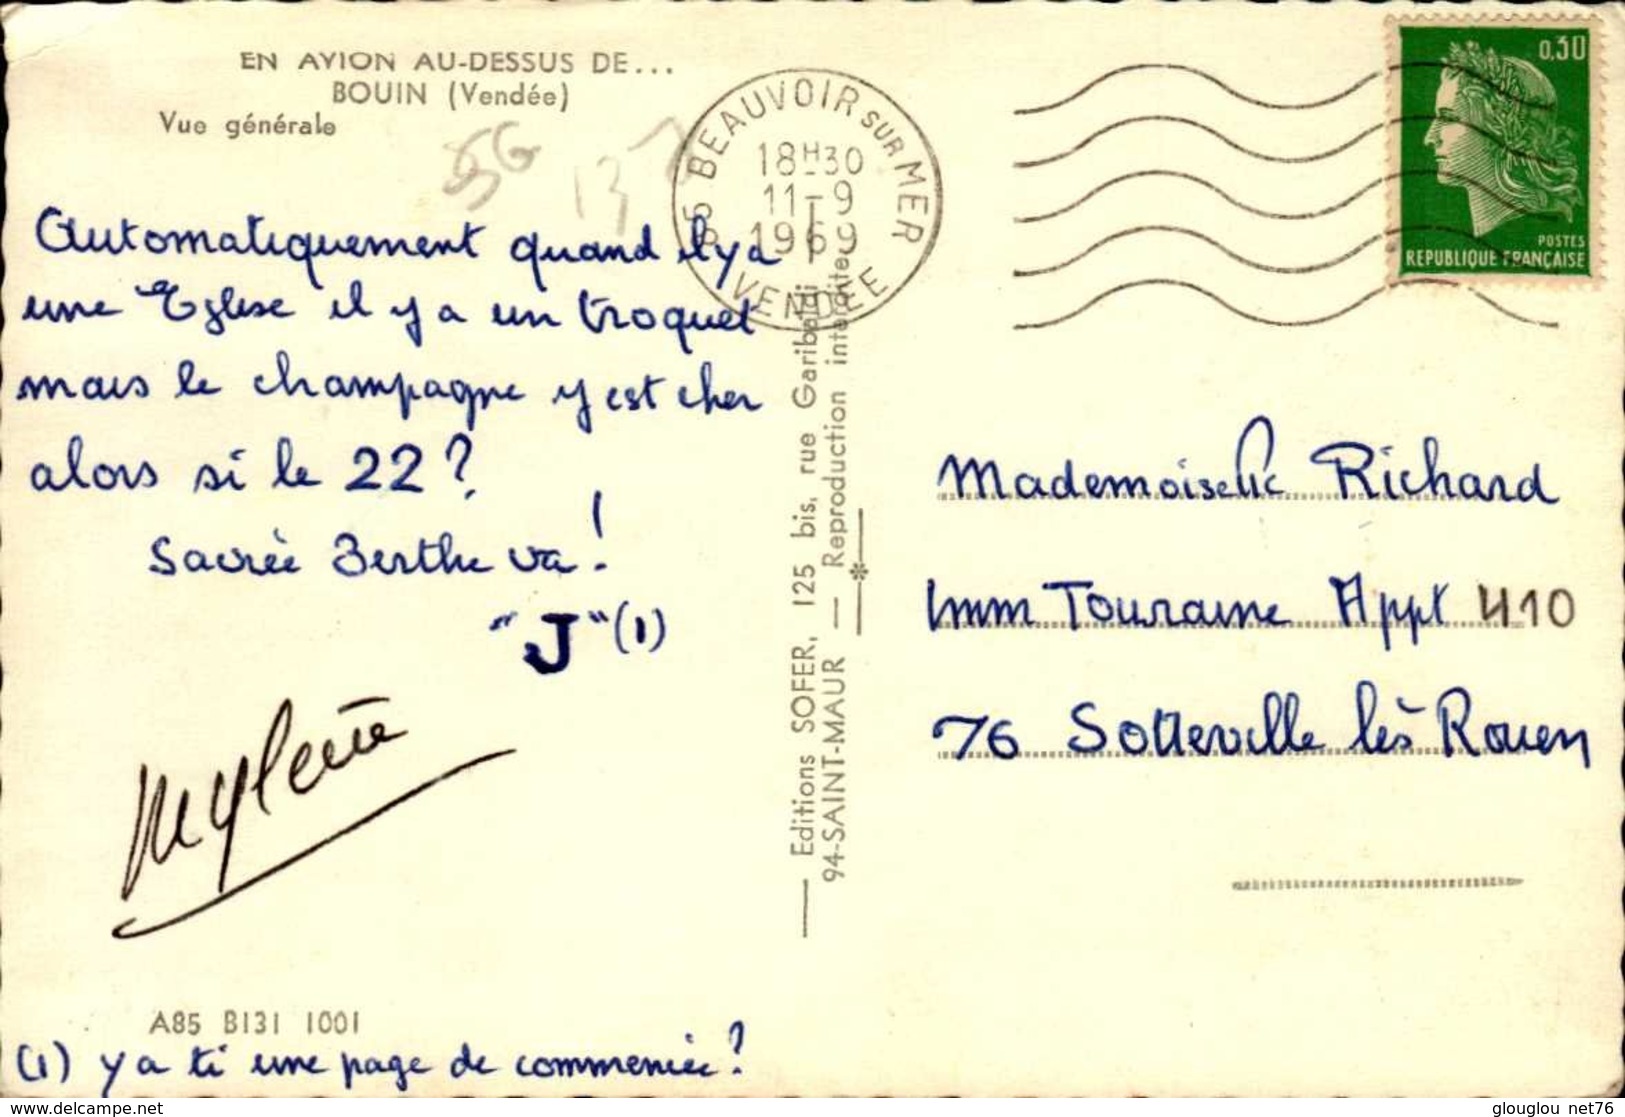 EN AVION AU-DESSUS DE...
BOUIN (Vendée)
Vue générale
56
137
Automatiquement quand il y a
une Eglise il y a un troquet
mais le champagne y est cher
alors si le 22 ?
Sacrée Berthe va !
"J" (1)
Mylène
A85 B131 1001
(1) y a ti une page de commencée ?
85 BEAUVOIR SUR MER
18H30
11-9
1969
VENDEE
Editions SOFER, 125 bis, rue Garibaldi
94-SAINT-MAUR — Reproduction interdite
0,30
POSTES
REPUBLIQUE FRANÇAISE
Mademoiselle Richard
Imm Touraine Appt 410
76 Sotteville lès Rouen
glouglou net76
www.delcampe.net